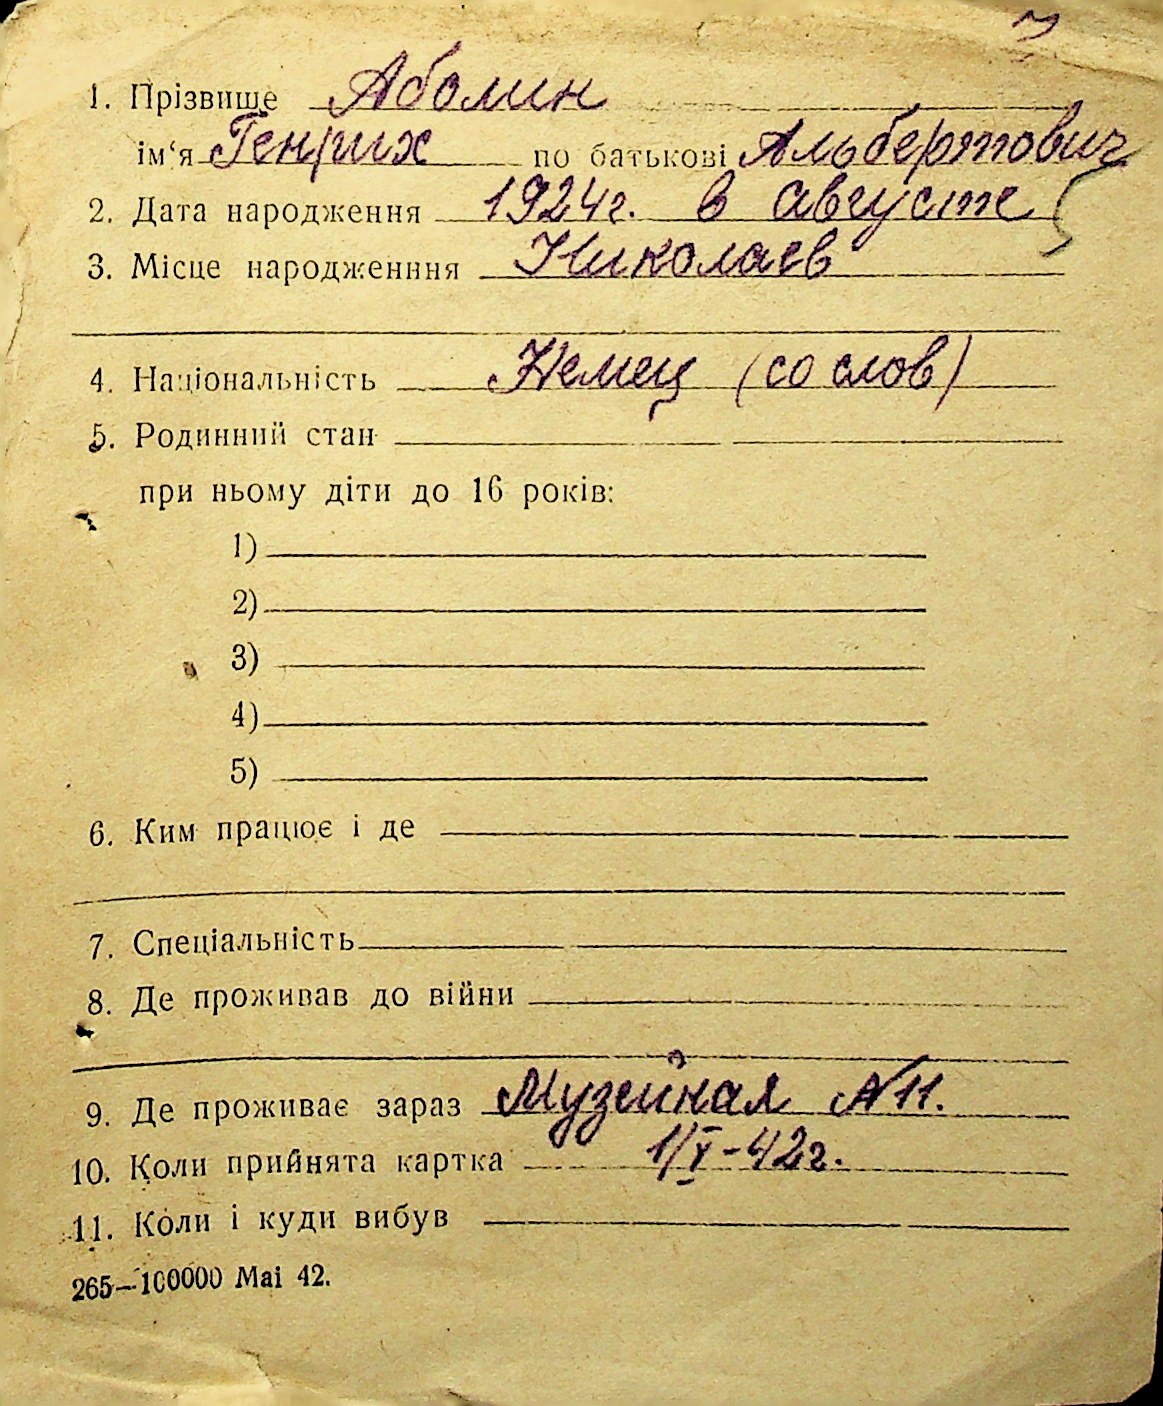 1. Прізвище Аболин
ім‘я Генрих по батькові Альбертович
2. Дата народження 1924г. в августе
3. Місце народженння Николаев
4. Національність Немец (со слов)
5. Родинний стан
при ньому діти до 16 років:
1)
2)
3)
4)
5)
6. Ким працює і де
7. Спеціальність
8. Де проживав до війни
9. Де проживає зараз Музейная №11.
10. Коли прийнята картка 1/V-42г.
11. Коли і куди вибув
265—100000 Mai 42.